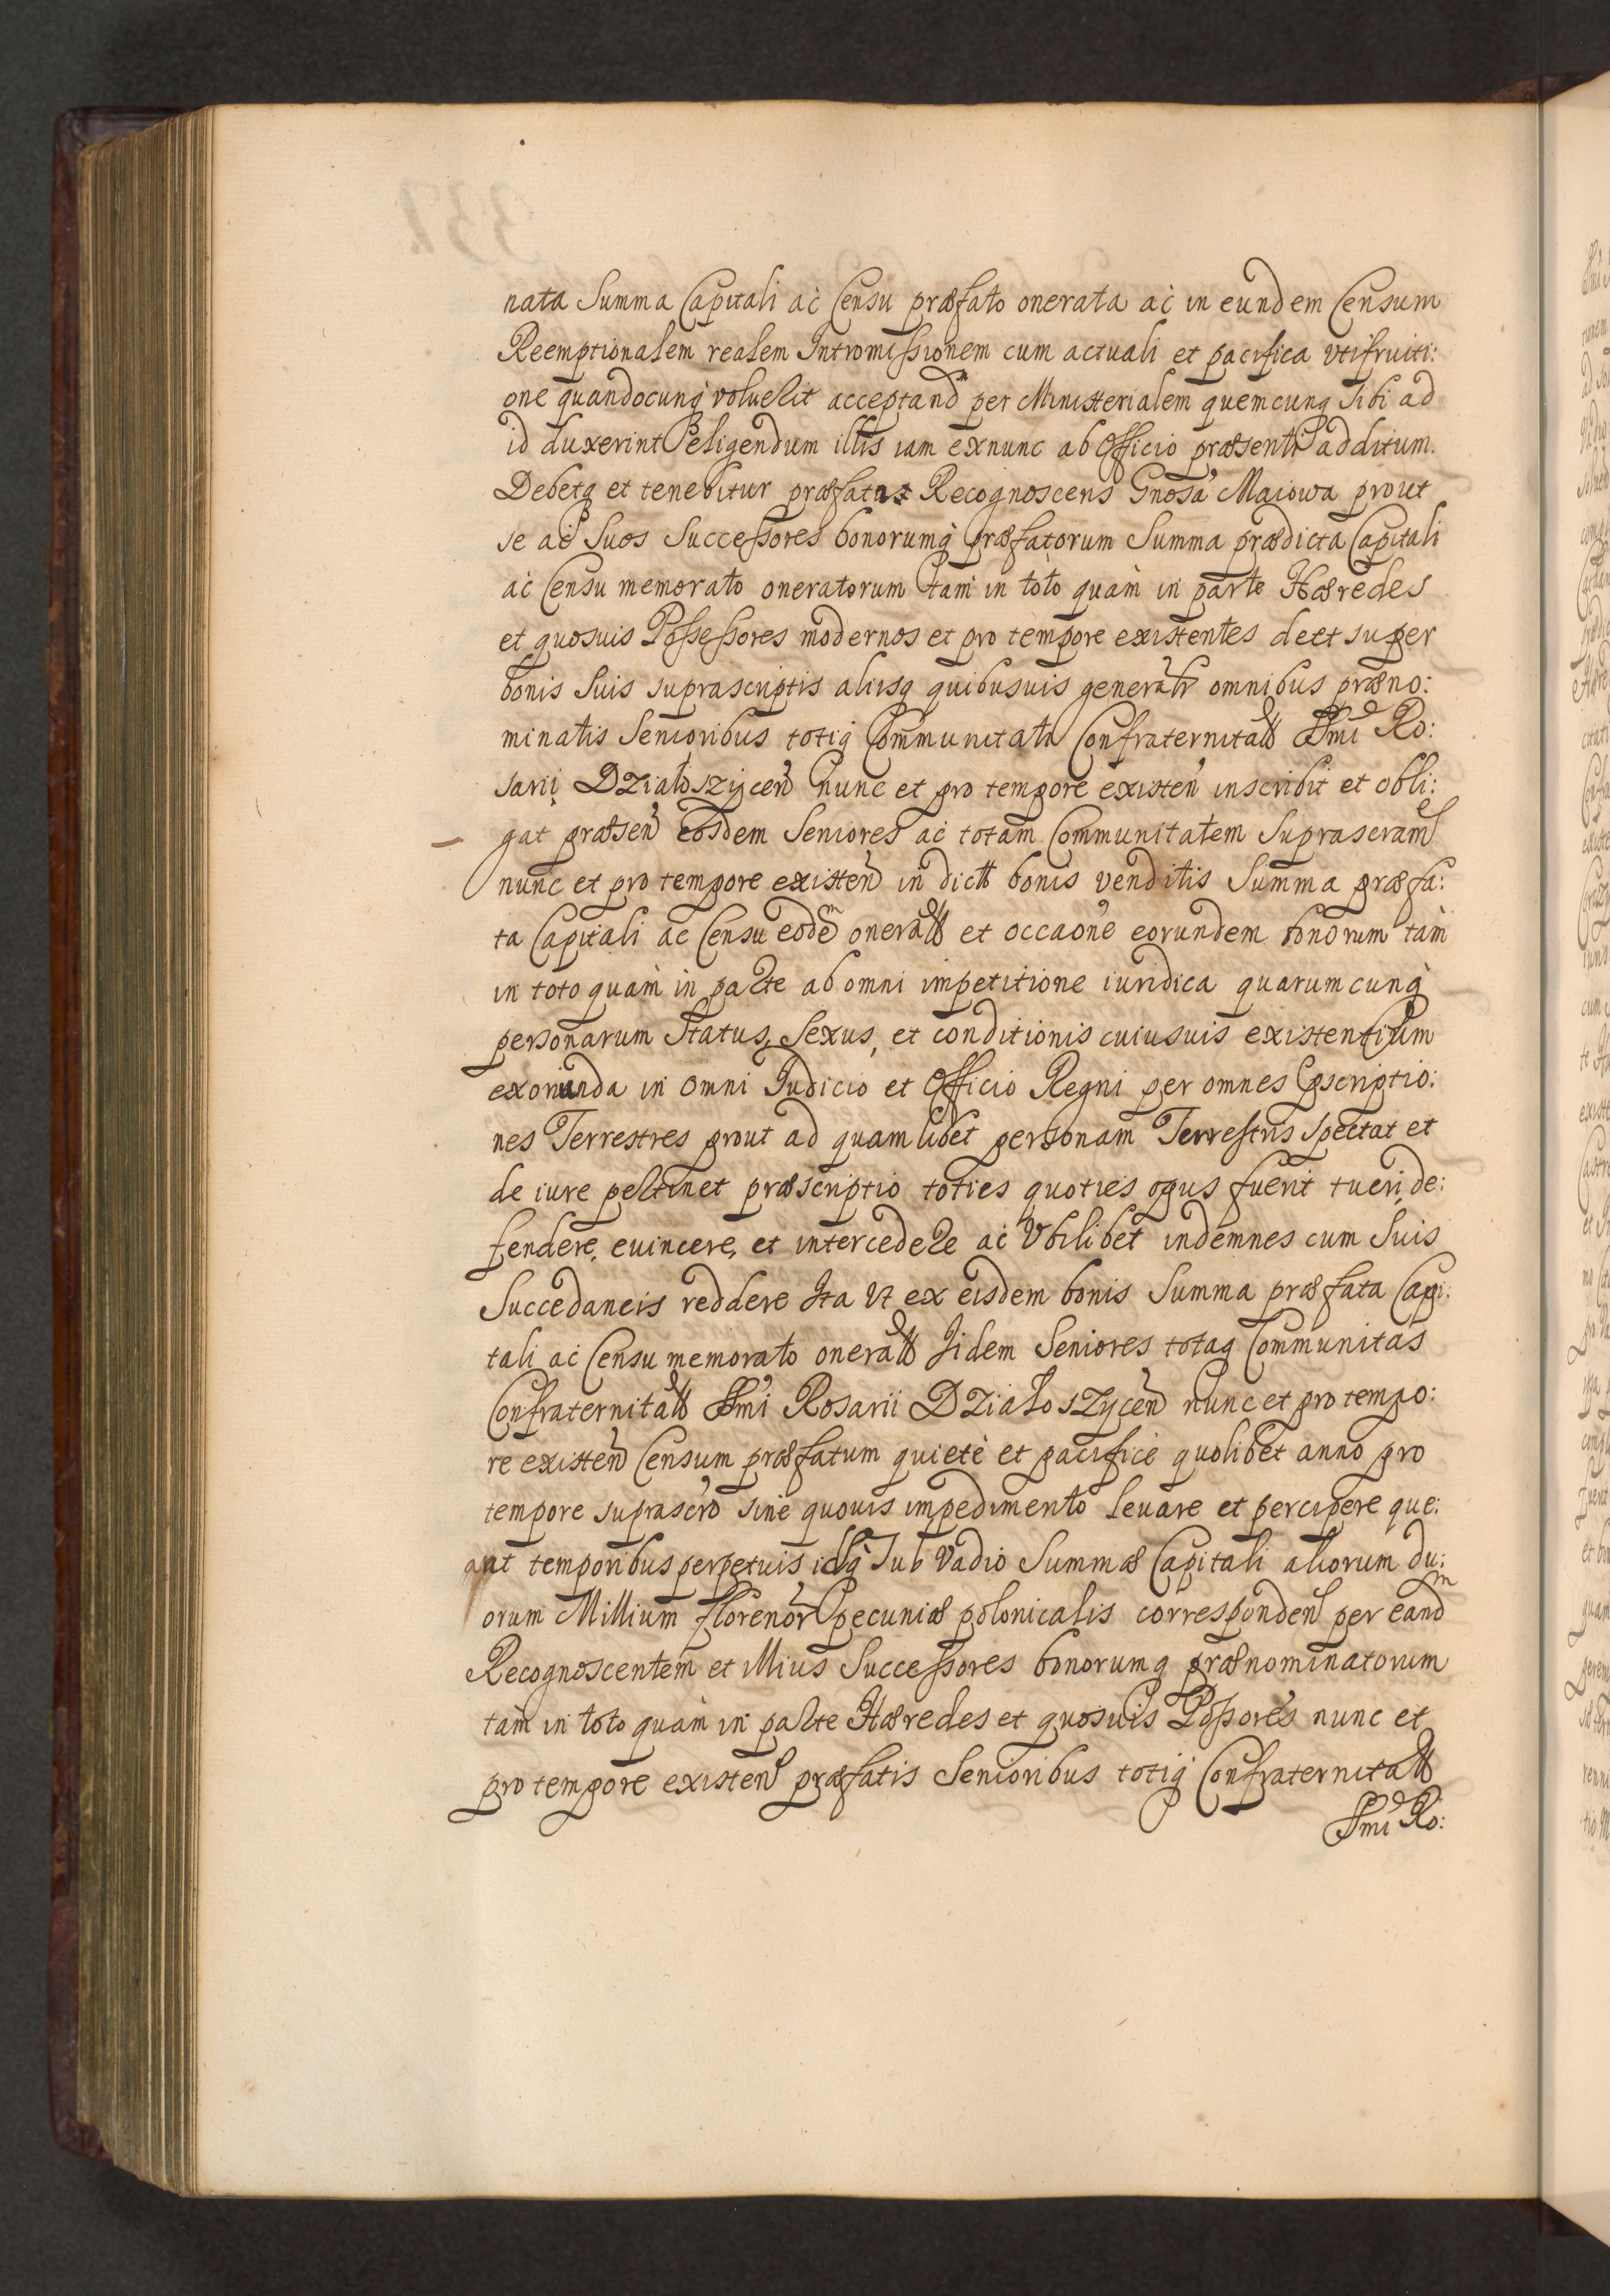 nata Summa Capitali ac Censu præfato onerata ac in eundem Censum
Reemptionalem realem Intromissionem cum actuali et pacifica vtifruiti:
one quandocunq̀ voluerit acceptand per Ministerialem quemcunq Sibi ad
id duxerint eligendum illis iam exnunc ab Officio præsenti additum.
Debetq et tenebitur præfata Recognoscens Gnosa Maiowa prout
se ac Suos Successores bonorumq̀ præfatorum Summa prædicta Capitali
ac Censu memorato oneratorum tam in toto quàm in parte Hæredes
et quosuis Possessores modernos et pro tempore existentes de et super
bonis Suis suprascriptis aliisq quibusuis generalr omnibus præno:
minatis Senioribus totiq Communitati Confraternitatt SSmi Ro:
sarii Działoszÿcen nunc et pro tempore existen inscribit et obli:
gat præsen Eosdem Seniores ac totam Communitatem Suprascram
nunc et pro tempore existen in dictt bonis venditis Summa præfa:
ta Capitali ac Censu eodem oneratt et occaone eorundem bonorum tàm
in toto quàm in parte ab omni impetitione iuridica quarumcunq̀
personarum Status, Sexus, et conditionis cuiusuis existentium
exorianda in omni Iudicio et Officio Regni per omnes pscriptio:
nes Terrestres prout ad quamlibet personam Terrestris Spectat et
de iure pertinet præscriptio toties quoties opus fuerit tueri, de:
fendere, euincere, et intercedere ac Vbilibet indemnes cum Suis
Succedaneis reddere Ita Vt ex eisdem bonis Summa præfata Capi:
tali ac Censu memorato oneratt Iidem Seniores totaq Communitas
Confraternitatt SSmi Rosarii Działoszÿcen nunc et pro tempo:
re existen Censum præfatum quietè et pacificè quolibet anno pro
tempore suprascro sine quouis impedimento leuare et percipere que:
ant temporibus perpetuis, idq̀ Sub Vadio Summæ Capitali aliorum du:
orum Millium florenor pecuniæ polonicalis corresponden per eandm
Recognoscentem et Illius Successores bonorumq prænominatorum
tàm in toto quàm in parte Hæredes et quosuis Possores nunc et
pro tempore existen præfatis Senioribus totiq̀ Confraternitatt
SSmi Ro: